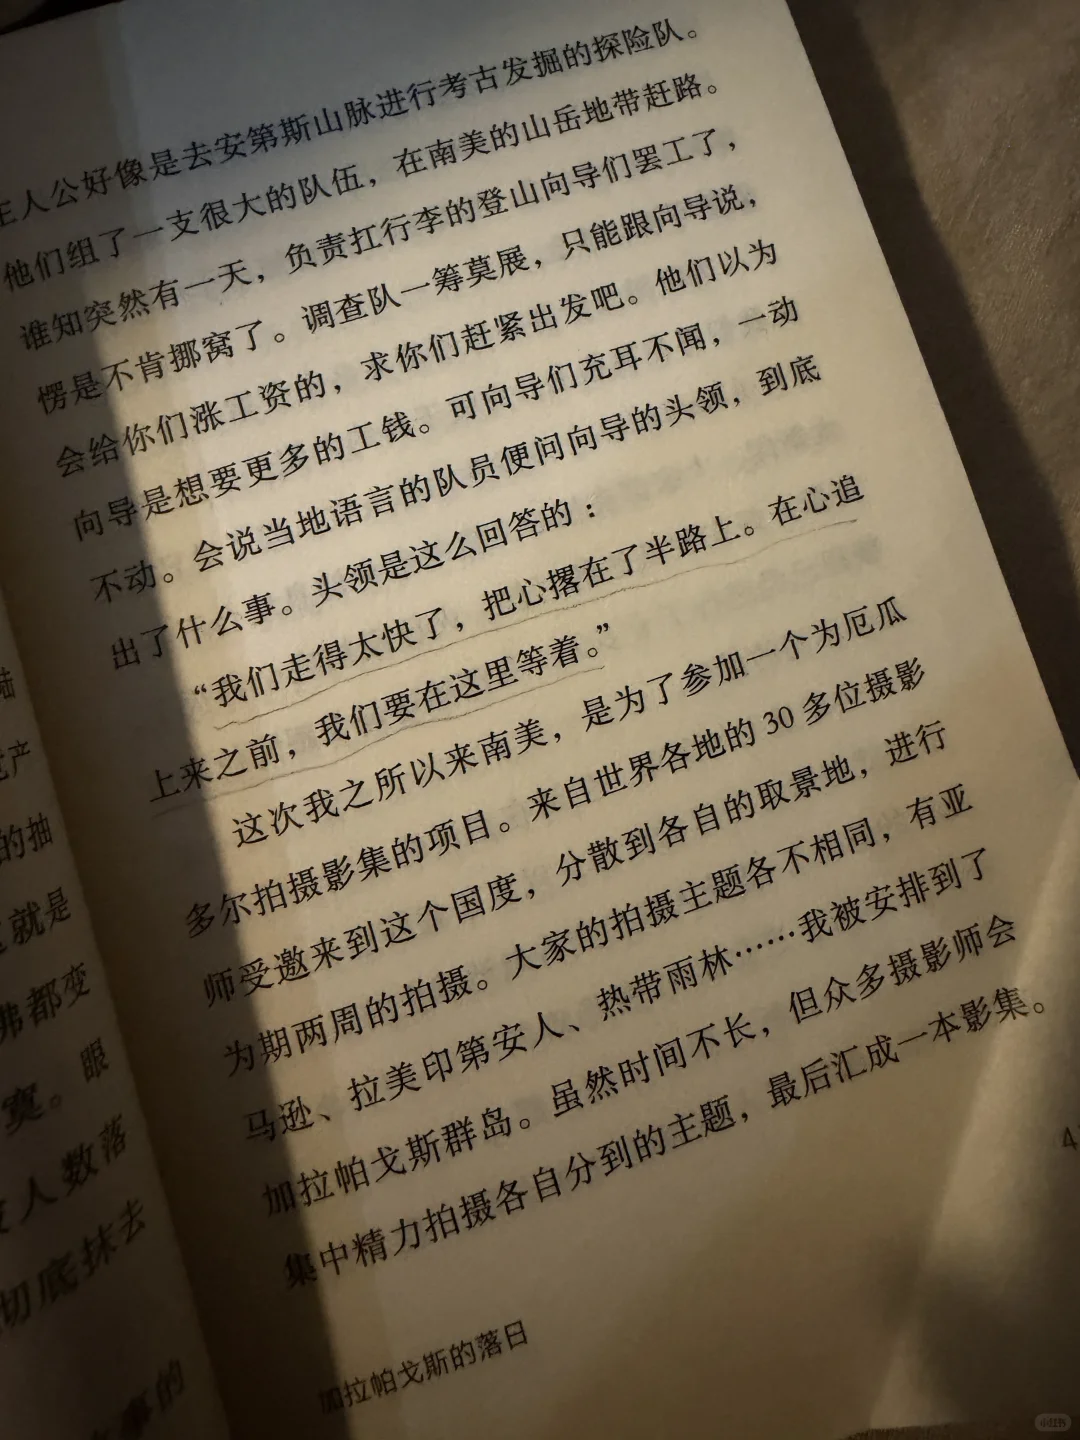 主人公好像是去安第斯山脉进行考古发掘的探险队。
他们组了一支很大的队伍，在南美的山岳地带赶路。
谁知突然有一天，负责扛行李的登山向导们罢工了，
愣是不肯挪窝了。调查队一筹莫展，只能跟向导说，
会给你们涨工资的，求你们赶紧出发吧。他们以为
向导是想要更多的工钱。可向导们充耳不闻，一动
不动。会说当地语言的队员便问向导的头领，到底
出了什么事。头领是这么回答的：
“我们走得太快了，把心撂在了半路上。在心追
上来之前，我们要在这里等着。”
这次我之所以来南美，是为了参加一个为厄瓜
多尔拍摄影集的项目。来自世界各地的 30 多位摄影
师受邀来到这个国度，分散到各自的取景地，进行
为期两周的拍摄。大家的拍摄主题各不相同，有亚
马逊、拉美印第安人、热带雨林……我被安排到了
加拉帕戈斯群岛。虽然时间不长，但众多摄影师会
集中精力拍摄各自分到的主题，最后汇成一本影集。
加拉帕戈斯的落日
陆
产
的抽
就是
弗都变
寞。眼
人数落
切底抹去
的
小红书